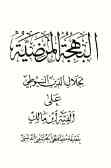 البهجة المرضية
لجلال الدين السيوطي
على
ألفية ابن مالك